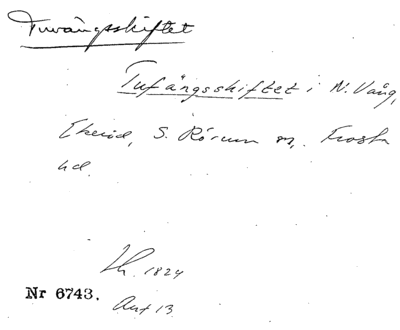 Tuvångsskiftet
Tufångsskiftet i N. Vång,
Ekeröd, S. Rörum sn, Frosta
hd.
Lh. 1824
Nr 6743.
Akt 13